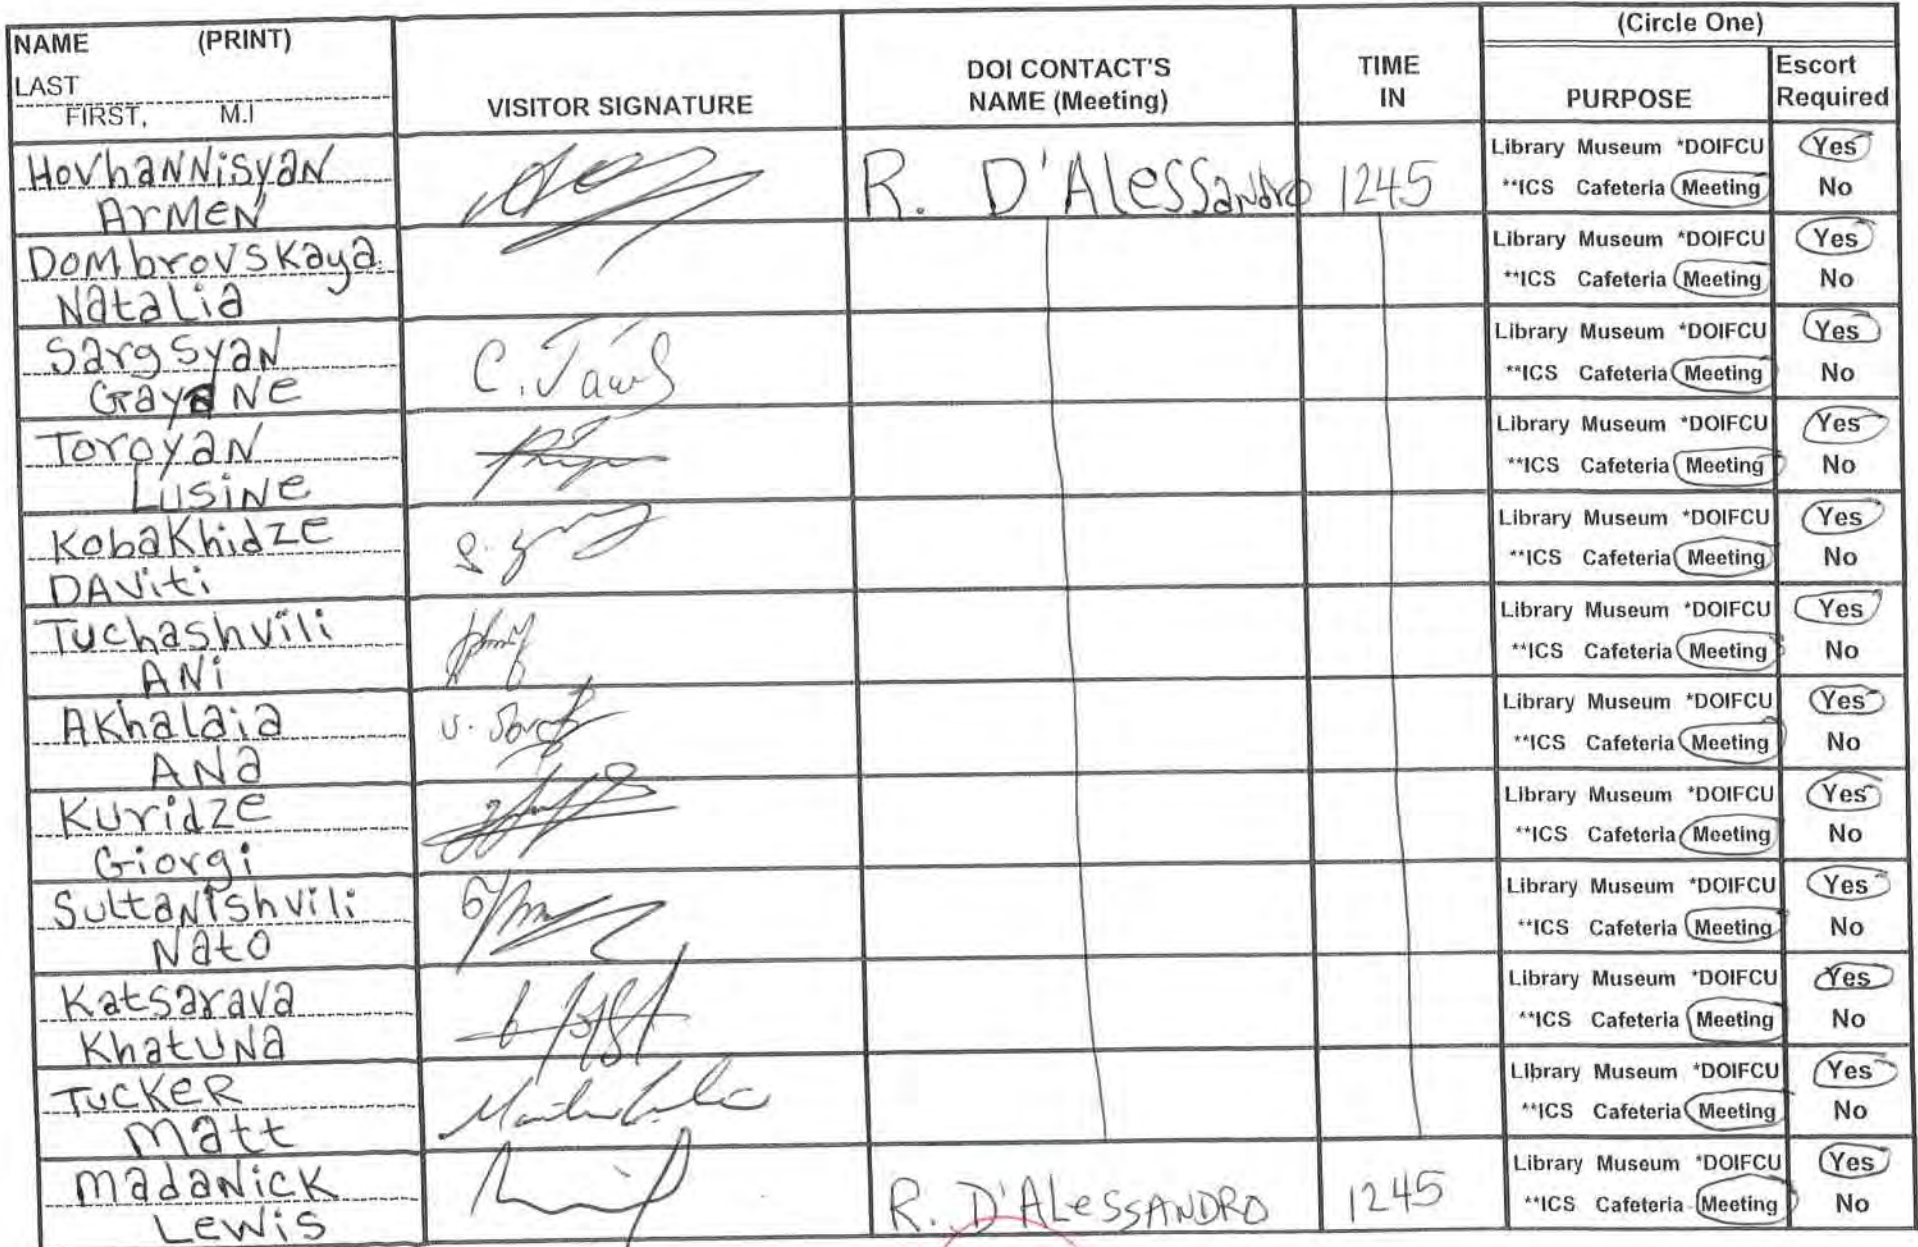 NAME (PRINT)
LAST
FIRST, M.I
VISITOR SIGNATURE
DOI CONTACT'S
NAME (Meeting)
TIME
IN
(Circle One)
PURPOSE
Escort
Required
Hovhannisyan
Armen
R. D'Alessandro 1245
Library Museum *DOIFCU Yes
**ICS Cafeteria Meeting No
Dombrovskaya
Natalia
Library Museum *DOIFCU Yes
**ICS Cafeteria Meeting No
Sargsyan
Gayane
Library Museum *DOIFCU Yes
**ICS Cafeteria Meeting No
Toroyan
Lusine
Library Museum *DOIFCU Yes
**ICS Cafeteria Meeting No
Kobakhidze
Daviti
Library Museum *DOIFCU Yes
**ICS Cafeteria Meeting No
Tuchashvili
Ani
Library Museum *DOIFCU Yes
**ICS Cafeteria Meeting No
Akhalaia
Ana
Library Museum *DOIFCU Yes
**ICS Cafeteria Meeting No
Kuridze
Giorgi
Library Museum *DOIFCU Yes
**ICS Cafeteria Meeting No
Sultanishvili
Nato
Library Museum *DOIFCU Yes
**ICS Cafeteria Meeting No
Katsarava
Khatuna
Library Museum *DOIFCU Yes
**ICS Cafeteria Meeting No
Tucker
Matt
Library Museum *DOIFCU Yes
**ICS Cafeteria Meeting No
Madanick
Lewis
R. D'ALESSANDRO 1245
Library Museum *DOIFCU Yes
**ICS Cafeteria Meeting No